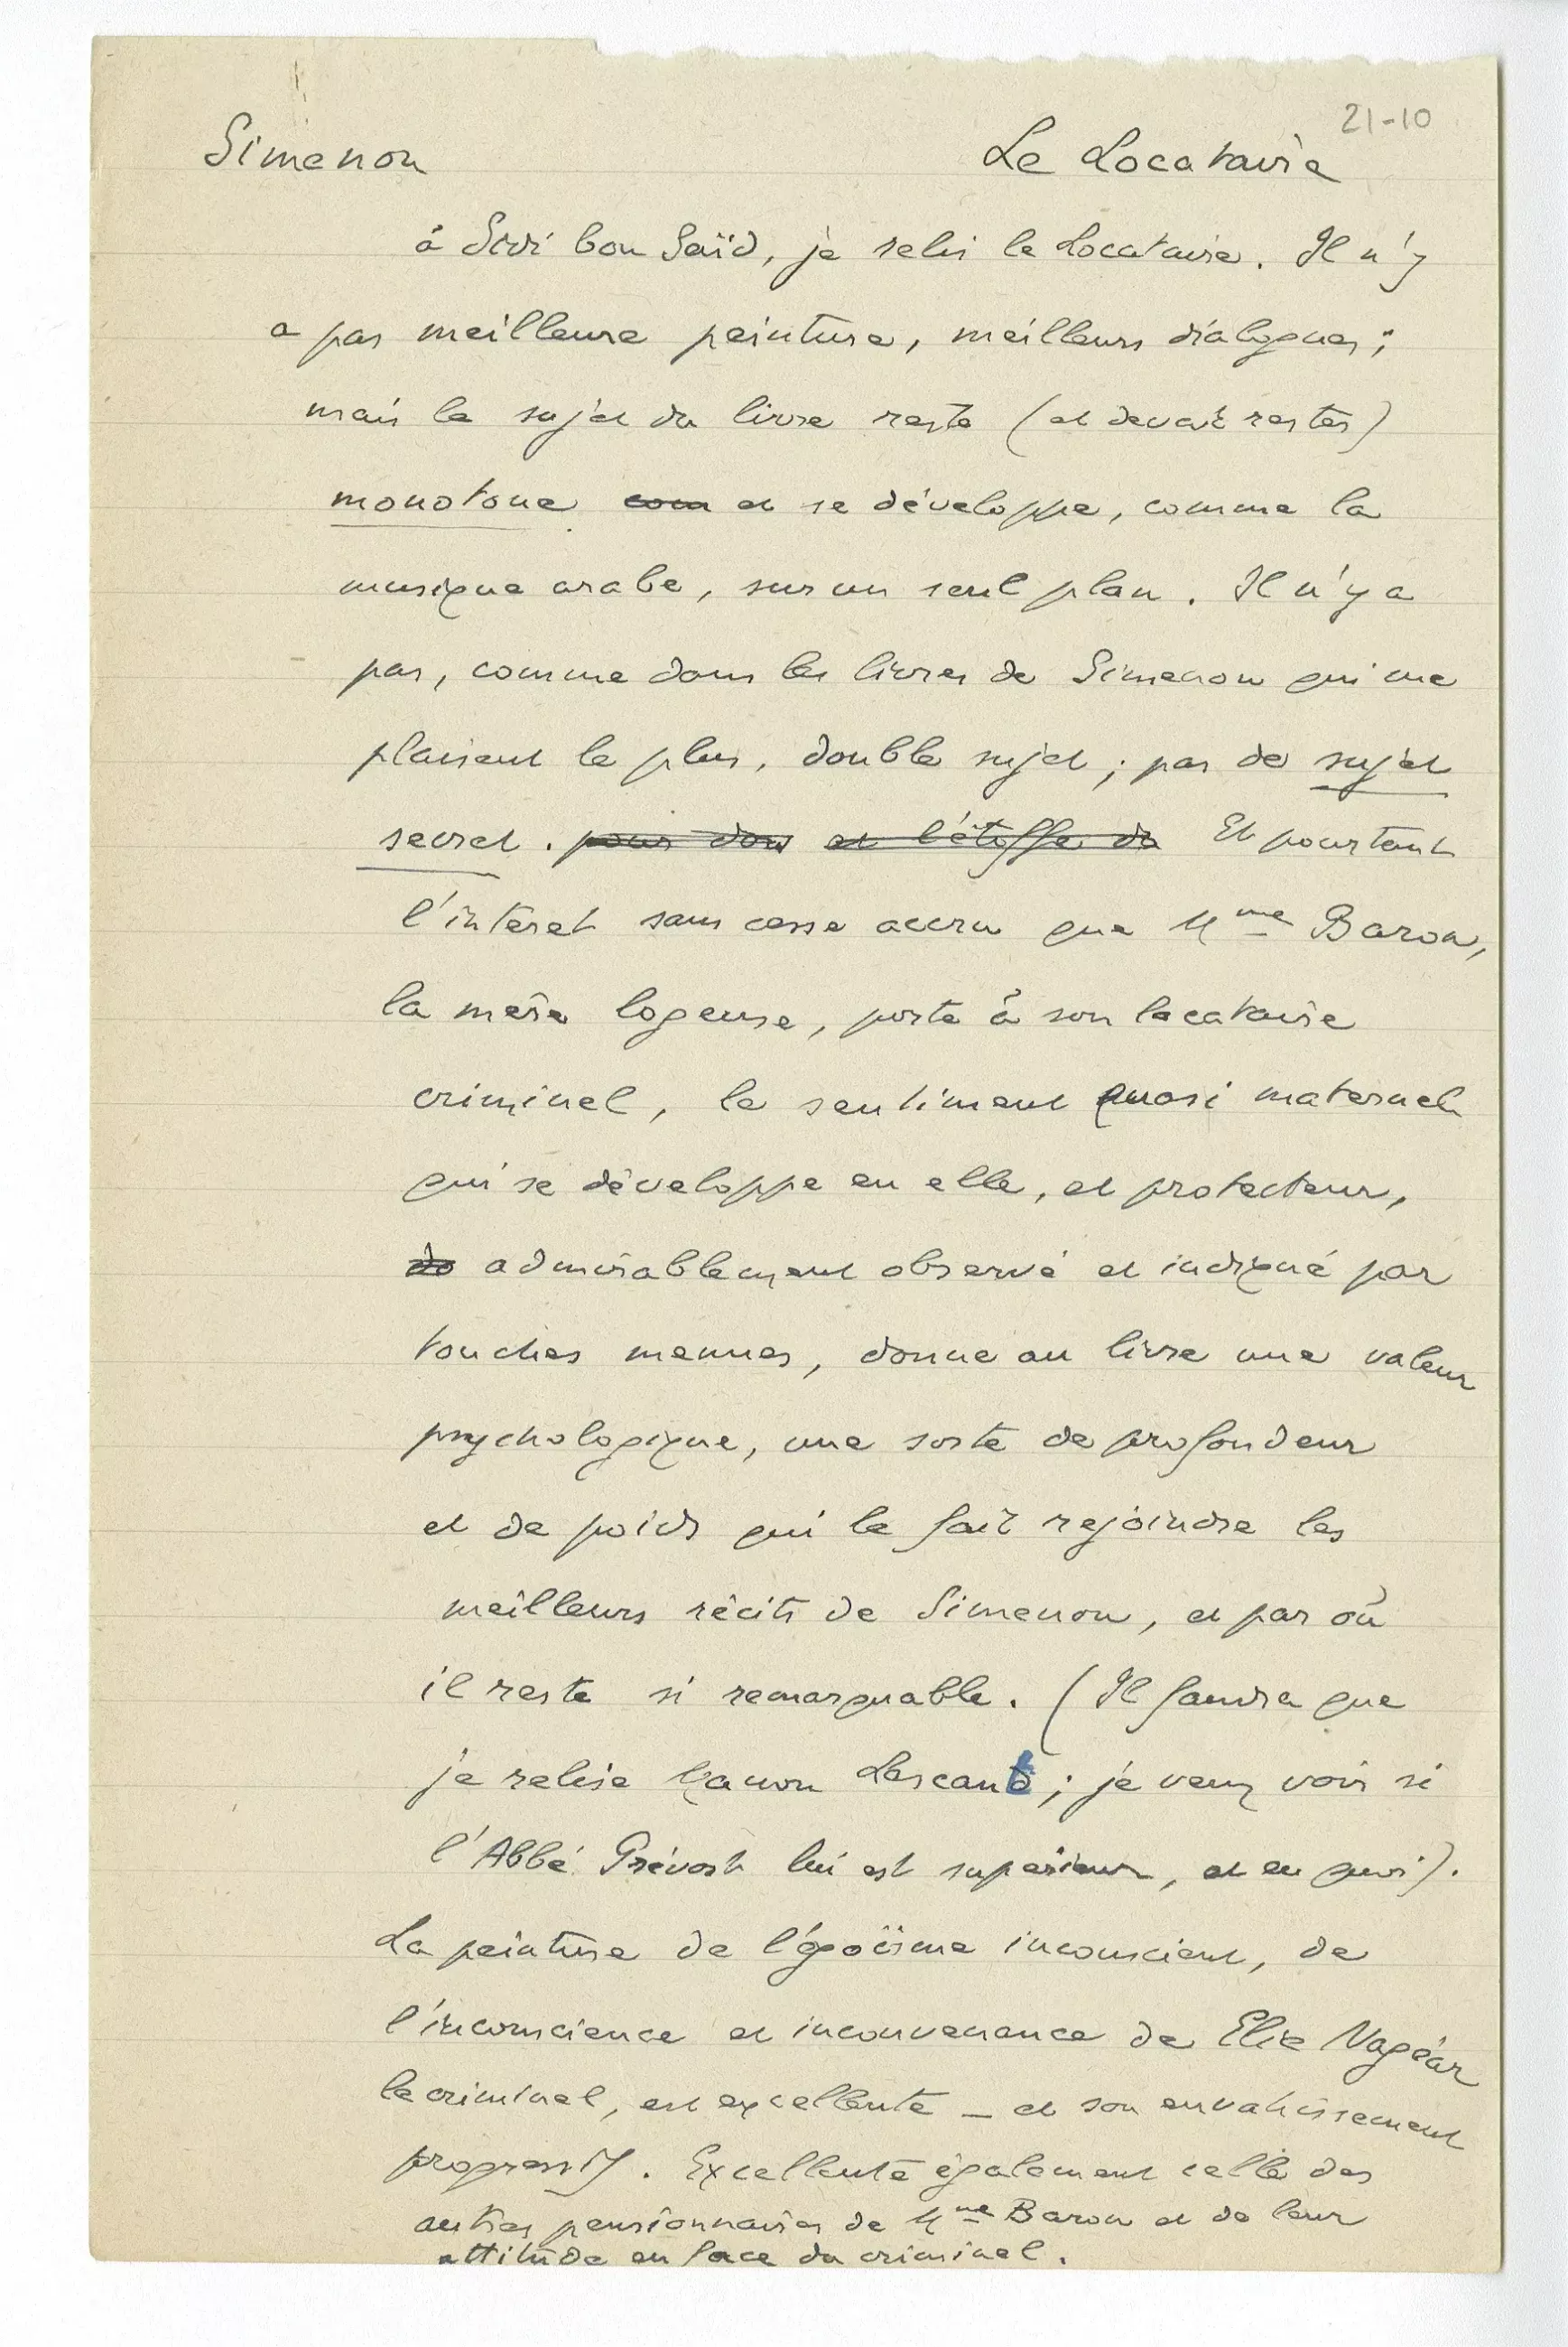 21-10
Simenon Le Locataire
à Sidi bou Saïd, je relis le Locataire. Il n'y
a pas meilleure peinture, meilleurs dialogues ;
mais le sujet du livre reste (et devait rester)
monotone com et se développe, comme la
musique arabe, sur un seul plan. Il n'y a
pas, comme dans les livres de Simenon qui me
plaisent le plus, double sujet ; pas de sujet
secret. pour dons et l'étoffe du Et pourtant
l'intéret sans cesse accru que Mme Baron,
la mère logeuse, porte à son locataire
criminel, le sentiment quasi maternel
qui se développe en elle, et protecteur,
do admirablement observé et indiqué par
touches menues, donne au livre une valeur
psychologique, une sorte de profondeur
et de poids qui le fait rejoindre les
meilleurs récits de Simenon, et par où
il reste si remarquable. (Il faudra que
je relise Manon Lescaut ; je veux voir si
l'Abbé Prévost lui est supérieur, et en quoi).
La peinture de l'égoïsme inconscient, de
l'inconscience et inconvenance de Elie Nagéar
le criminel, est excellente — et son envahissement
progressif. Excellente également celle des
autres pensionnaires de Mme Baron et de leur
attitude en face du criminel.